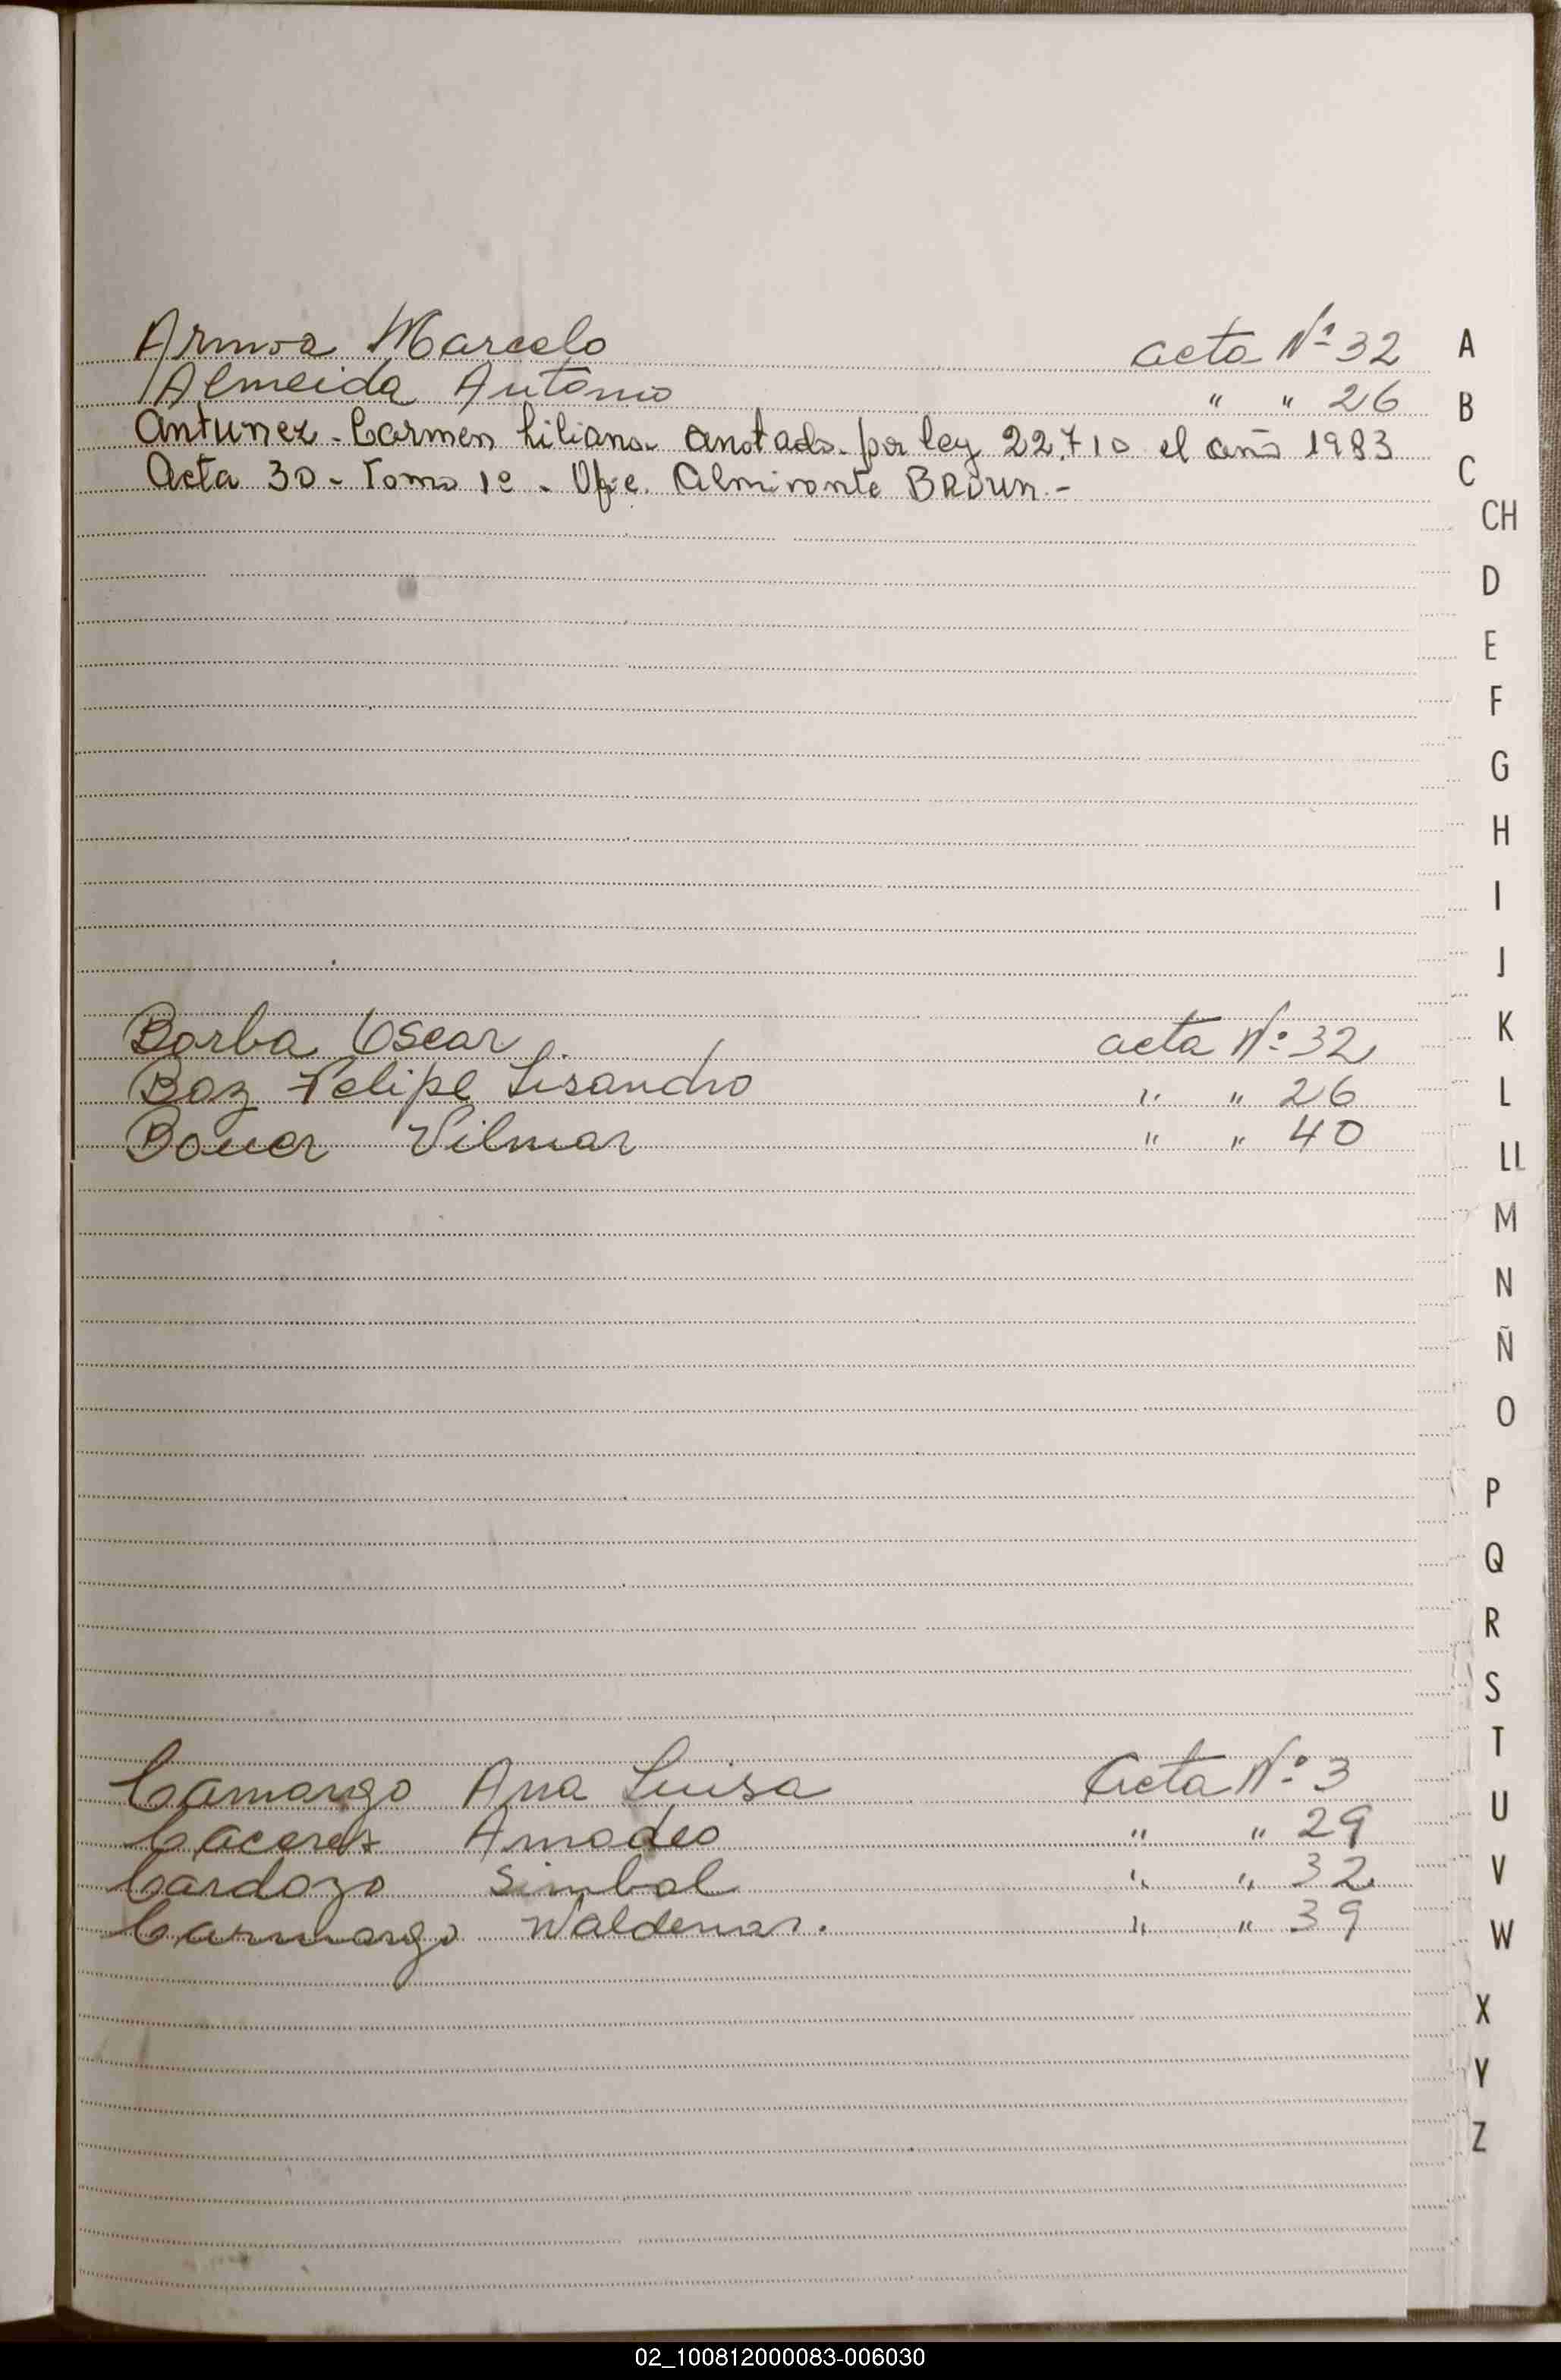 Armoa Marcelo acta Nº 32
Almeida Antonio " " 26
Antunez - Carmen Liliana - anotada - por ley 22.710 el año 1983
Acta 30 - Tomo 1º - Ofic. Almirante BROUN. -
Barba Oscar acta Nº 32
Baz Felipe Lisandro " " 26
Bauer Vilmar " " 40
Camargo Ana Luisa Acta Nº 3
Caceres Amadeo " " 29
Cardozo Simbal " " 32
Carmargo Waldemar. " " 39
A
B
C
CH
D
E
F
G
H
I
J
K
L
LL
M
N
Ñ
O
P
Q
R
S
T
U
V
W
X
Y
Z
02_100812000083-006030